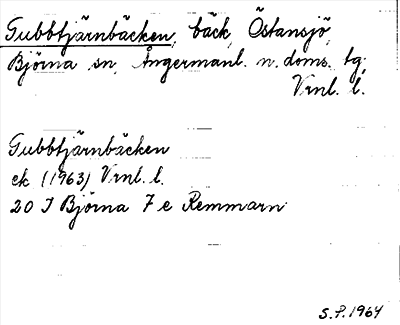 Gubbtjärnbäcken, bäck, Östansjö,
Björna sn, Ångermanl. n. doms. tg;
Vrnl. l.
Gubbtjärnbäcken
ek (1963) Vrnl. l.
20 I Björna 7 e Remmarn
S.P. 1964